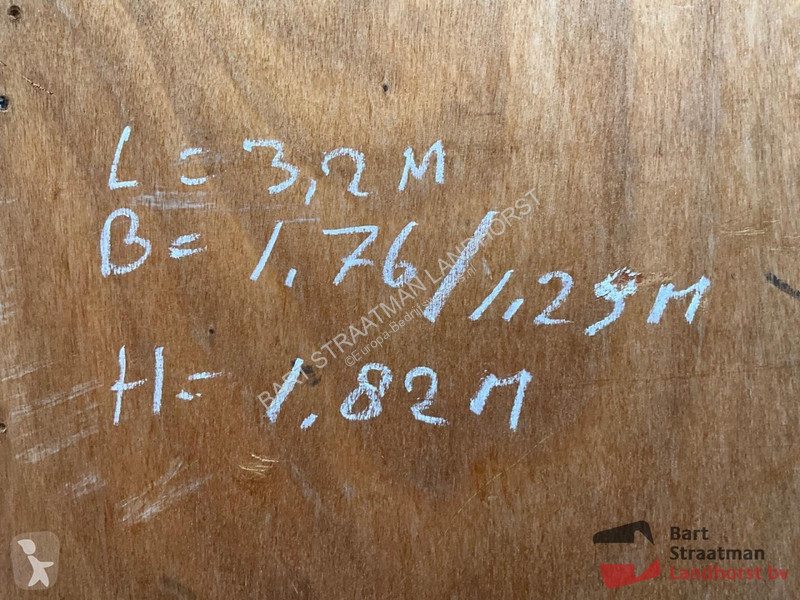 L = 3,2 M
B = 1,76/1,29 M
H = 1,82 M
BART STRAATMAN LANDHORST
Bart
Straatman
Landhorst bv